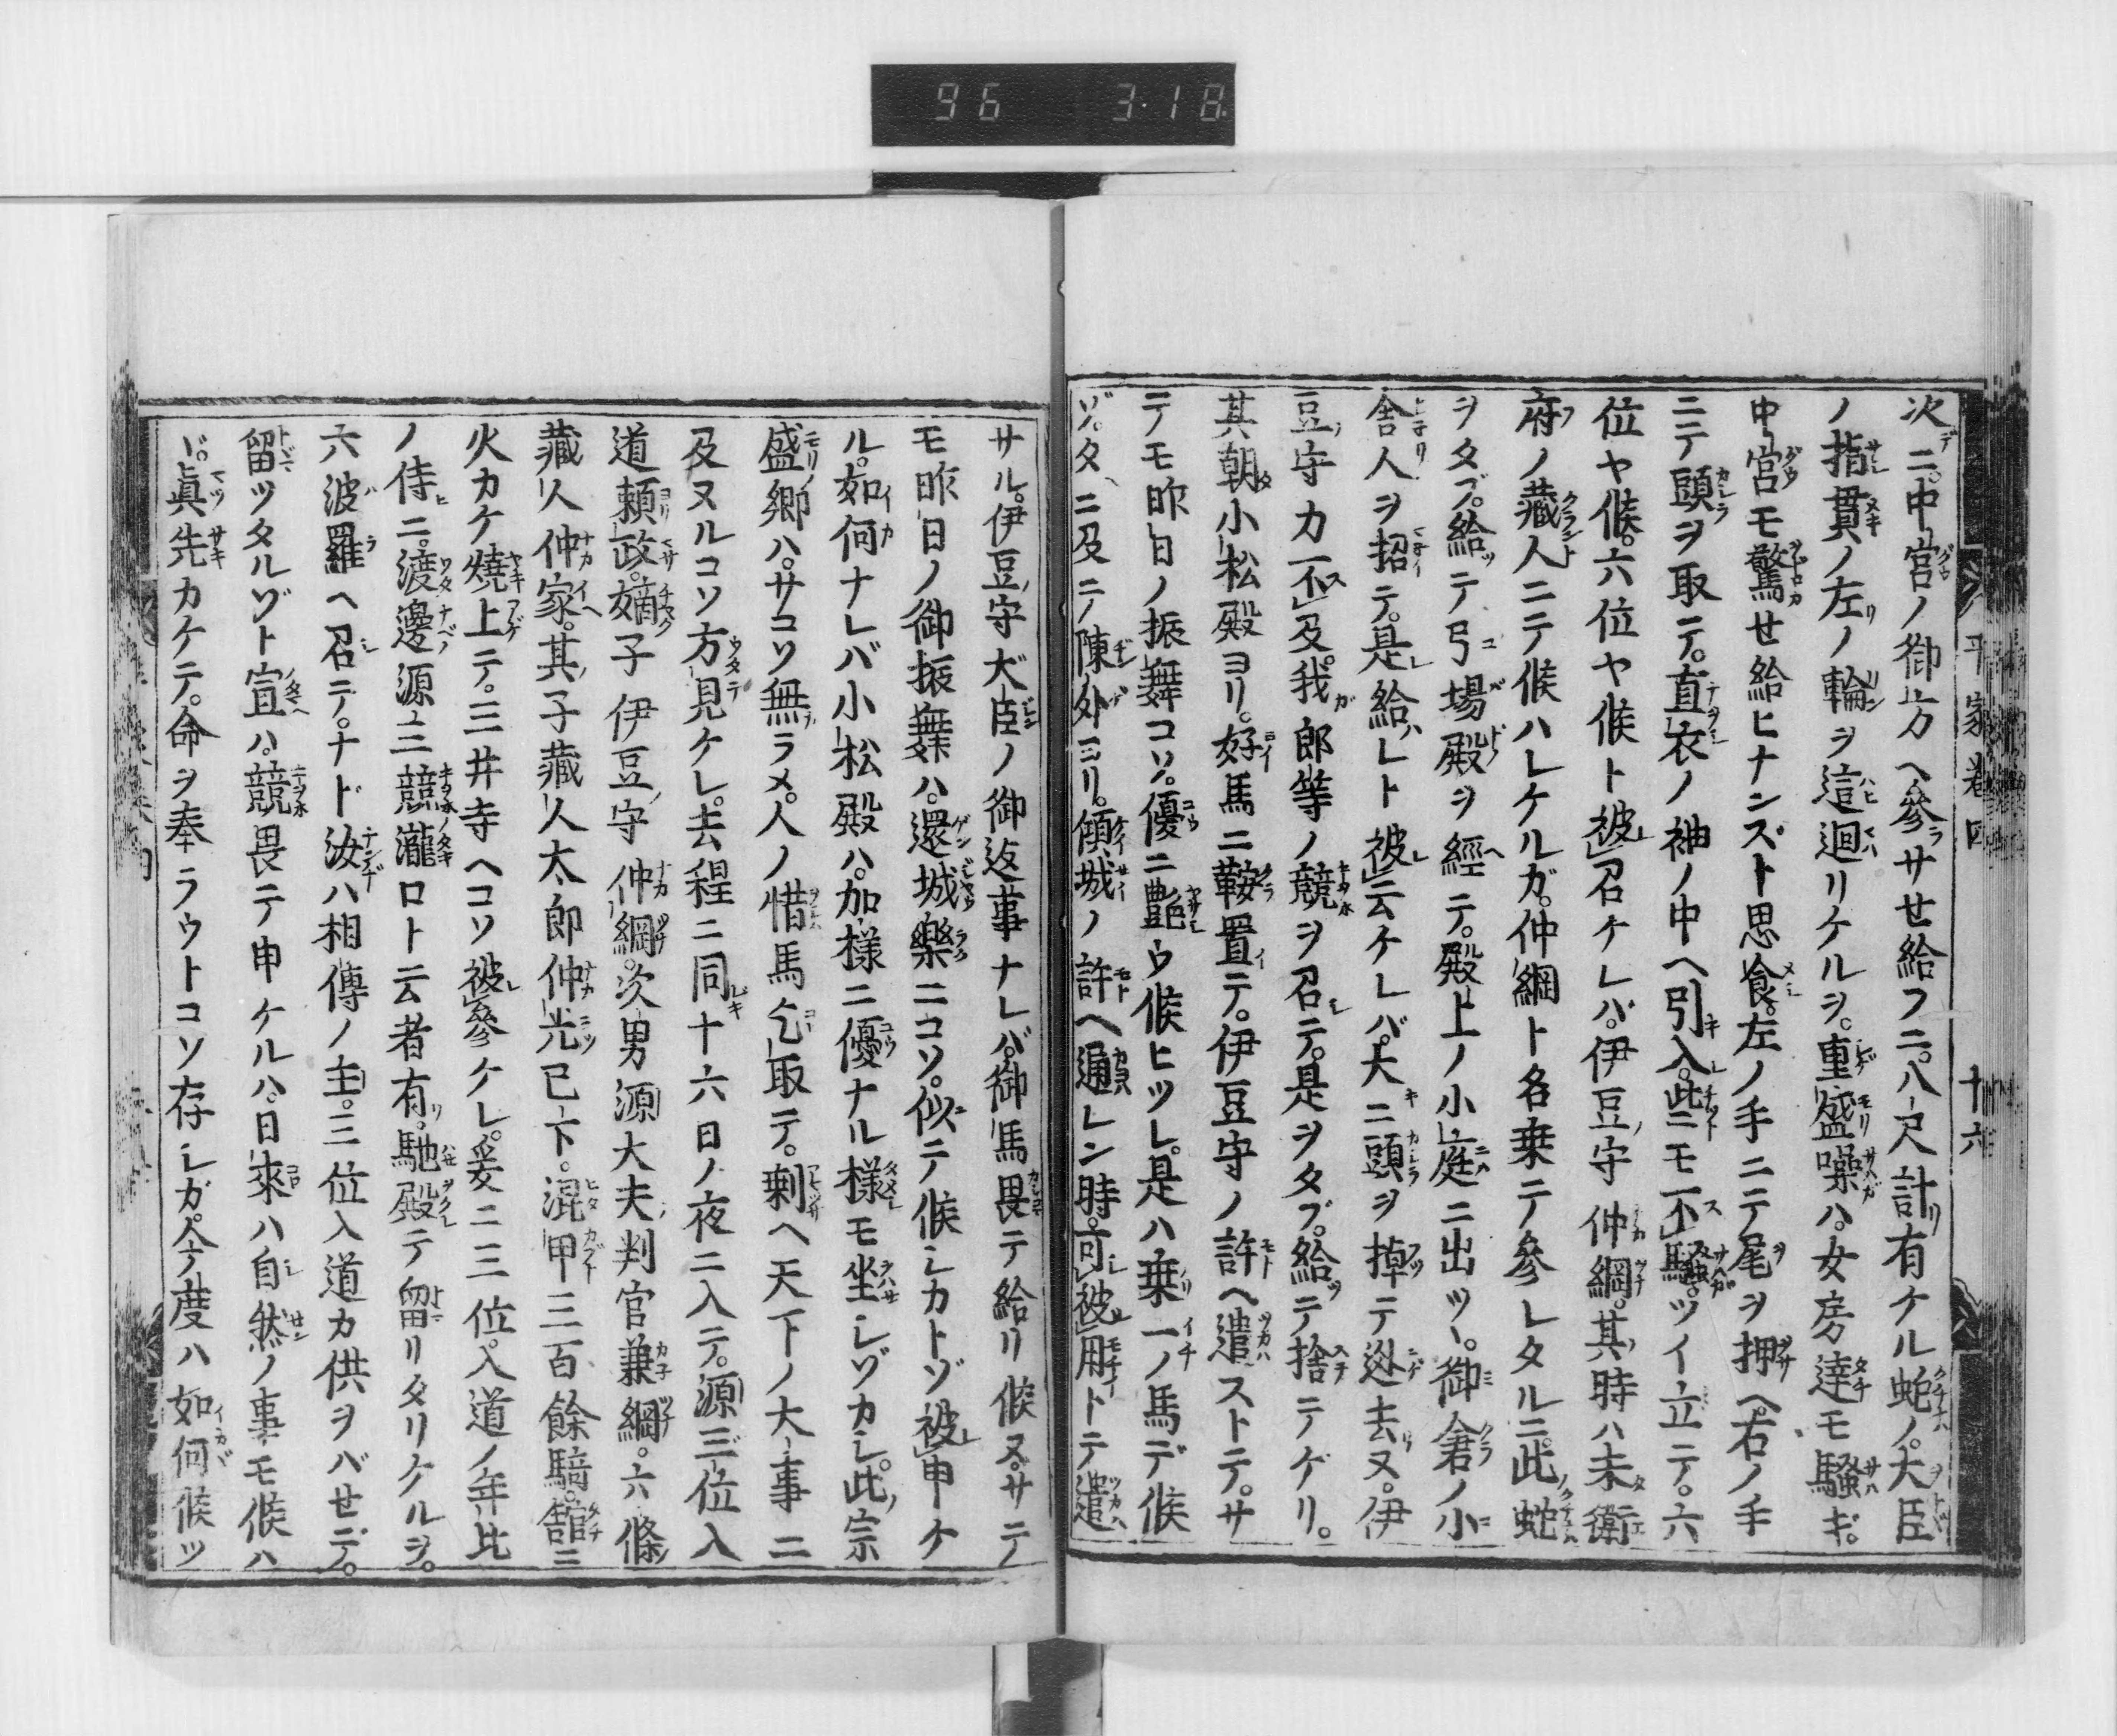 96 3.18
平家巻四 十六
次ニ。中宮ノ御方ヘ參サせ給フニ。八尺計有ケル蛇ノ。大臣
ノ指貫ノ左ノ輪ヲ這迴リケルヲ。重盛噪ハ。女房達モ騒ギ。
中宮モ驚せ給ヒナンズト思食。左ノ手ニテ尾ヲ押ヘ。右ノ手
ニテ頭ヲ取テ。直衣ノ袖ノ中ヘ引入。此ニモ不騒。ツイ立テ。六
位ヤ候。六位ヤ候ト被召ケレバ。伊豆守仲綱。其時ハ未衛
府ノ藏人ニテ候ハレケルガ。仲綱ト名乗テ參レタルニ。此蛇
ヲタブ。給テ弓場殿ヲ經テ。殿上ノ小庭ニ出ツヽ。御倉ノ小
舎人ヲ招テ。是給レト被云ケレバ。大ニ頭ヲ掉テ迯去ヌ。伊
豆守力不及。我郎等ノ競ヲ召テ。是ヲタブ。給テ捨テゲリ。
其朝小松殿ヨリ。好馬ニ鞍置テ。伊豆守ノ許ヘ遣ストテ。サ
テモ昨日ノ振舞コソ。優ニ艶ウ候ヒツレ。是ハ乗一ノ馬デ候
ゾ。夕ニ及テ陳外ヨリ。傾城ノ許ヘ通レン時。可被用トテ遣
サル。伊豆守大臣ノ御返事ナレバ。御馬畏テ給リ候ヌ。サテ
モ昨日ノ御振舞ハ。還城樂ニコソ。似テ候シカトゾ被申ケ
ル。如何ナレバ小松殿ハ。加様ニ優ナル様モ坐シゾカシ。此宗
盛卿ハ。サコソ無ラメ。人ノ惜馬乞取テ。剰ヘ天下ノ大事ニ
及ヌルコソ方見ケレ。去程ニ同十六日ノ夜ニ入テ。源三位入
道頼政。嫡子伊豆守仲綱。次男源大夫判官兼綱。六條
藏人仲家。其子藏人太郎仲光已下。混甲三百餘騎。舘ニ
火カケ燒上テ。三井寺ヘコソ被參ケレ。爰ニ三位入道ノ年比
ノ侍ニ。渡邊源三競瀧口ト云者有。馳殿テ留リタリケルヲ。
六波羅ヘ召テ。ナド汝ハ相傳ノ主。三位入道カ供ヲバせデ。
留ツタルゾト宣ハ。競畏テ申ケルハ。日來ハ自然ノ事モ候ハ
ヾ。眞先カケテ。命ヲ奉ラウトコソ存シガ。今度ハ如何候ツ